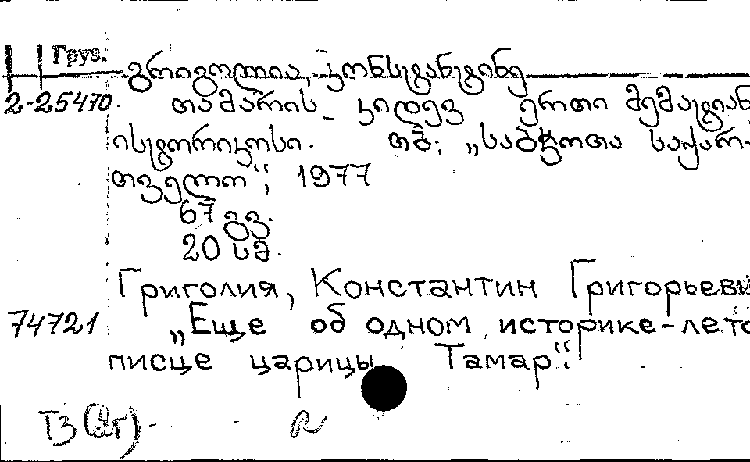 Груз.
გრიგოლია, კონსტანტინე
2-25470. თამარის კიდევ ერთი მემატიან
ისტორიკოსი. თბ., „საბჭოთა საქარ-
თველო“, 1977
67 გვ.
20 სმ.
Григолия, Константин Григорьеви
74721 „Еще об одном историке-лето
писце царицы Тамар“.
ТЗ (2г).